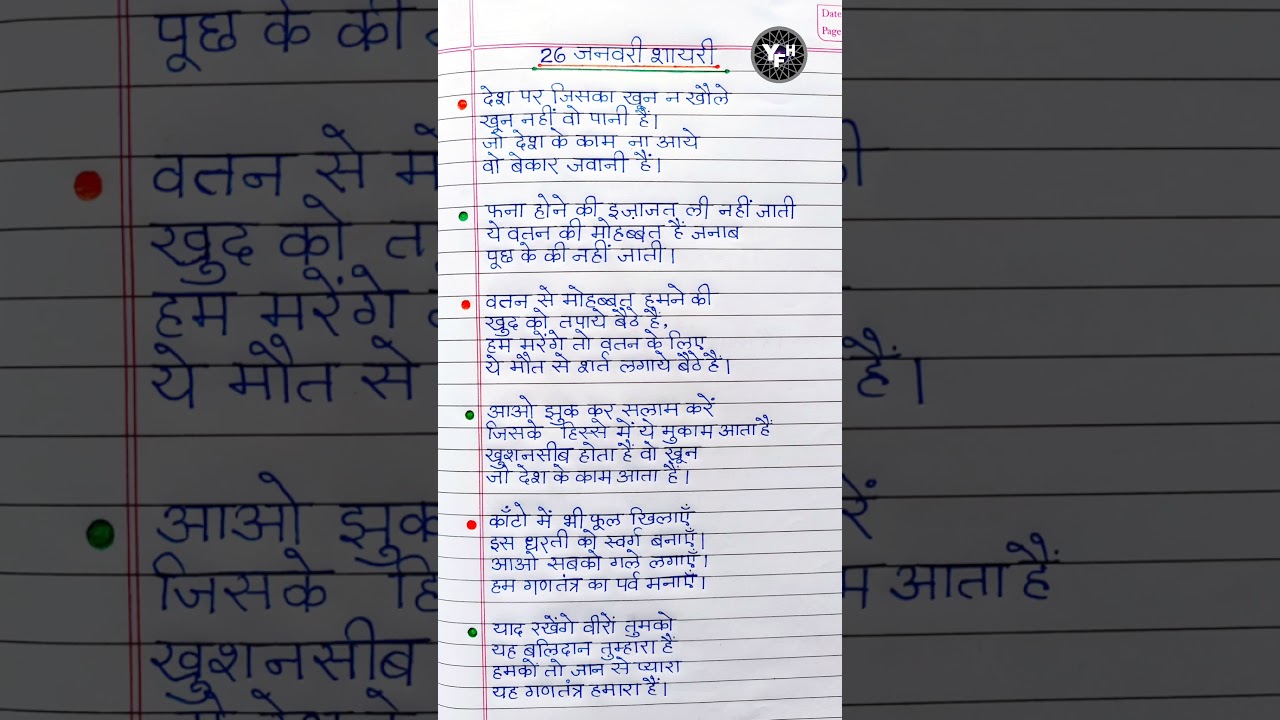 26 जनवरी शायरी
YFH
Date
Page
देश पर जिसका खून न खौले
खून नहीं वो पानी हैं।
जो देश के काम ना आये
वो बेकार जवानी हैं।
फना होने की इज़ाजत ली नहीं जाती
ये वतन की मोहब्बत हैं जनाब
पूछ के की नहीं जाती।
वतन से मोहब्बत हमने की
खुद को तपाये बैठे हैं,
हम मरेंगे तो वतन के लिए
ये मौत से शर्त लगाये बैठे हैं।
आओ झुक कर सलाम करें
जिसके हिस्से में ये मुकाम आता हैं
खुशनसीब होता हैं वो खून
जो देश के काम आता हैं।
काँटो में भी फूल खिलाएँ
इस धरती को स्वर्ग बनाएँ।
आओ सबको गले लगाएँ।
हम गणतंत्र का पर्व मनाएँ।
याद रखेंगे वीरों तुमको
यह बलिदान तुम्हारा हैं
हमकों तो जान से प्यारा
यह गणतंत्र हमारा हैं।